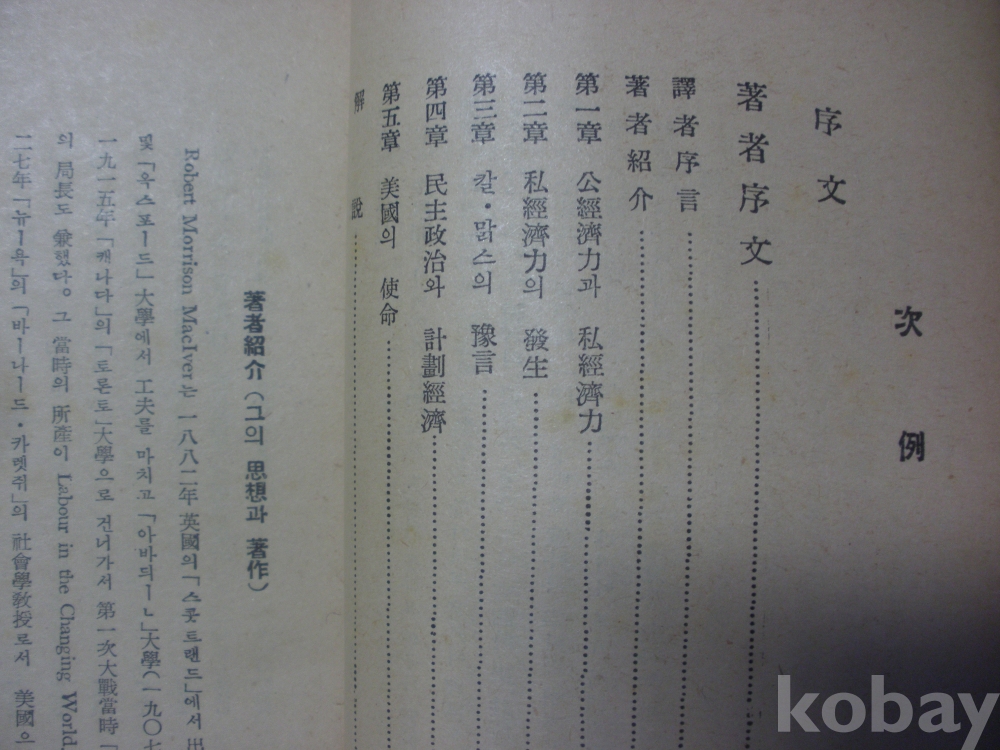 次例
序文
著者序文
譯者序言
著者紹介
第一章 公經濟力과 私經濟力
第二章 私經濟力의 發生
第三章 칼·맑스의 豫言
第四章 民主政治와 計劃經濟
第五章 美國의 使命
解說
著者紹介(그의 思想과 著作)
Robert Morrison MacIver는 一八八二年 英國의 「스콧트랜드」에서 出
및 「옥스포ー드」大學에서 工夫를 마치고 「아바듸ーㄴ」大學(一九〇七
一九一五年 「캐나다」의 「토론토」大學으로 건너가서 第一次大戰當時 「
의 局長도 兼했다。 그 當時의 所産이 Labour in the Changing World,
二七年 「뉴ー욕」의 「바ー나ー드·카렛쥐」의 社會學敎授로서 美國으
kobay